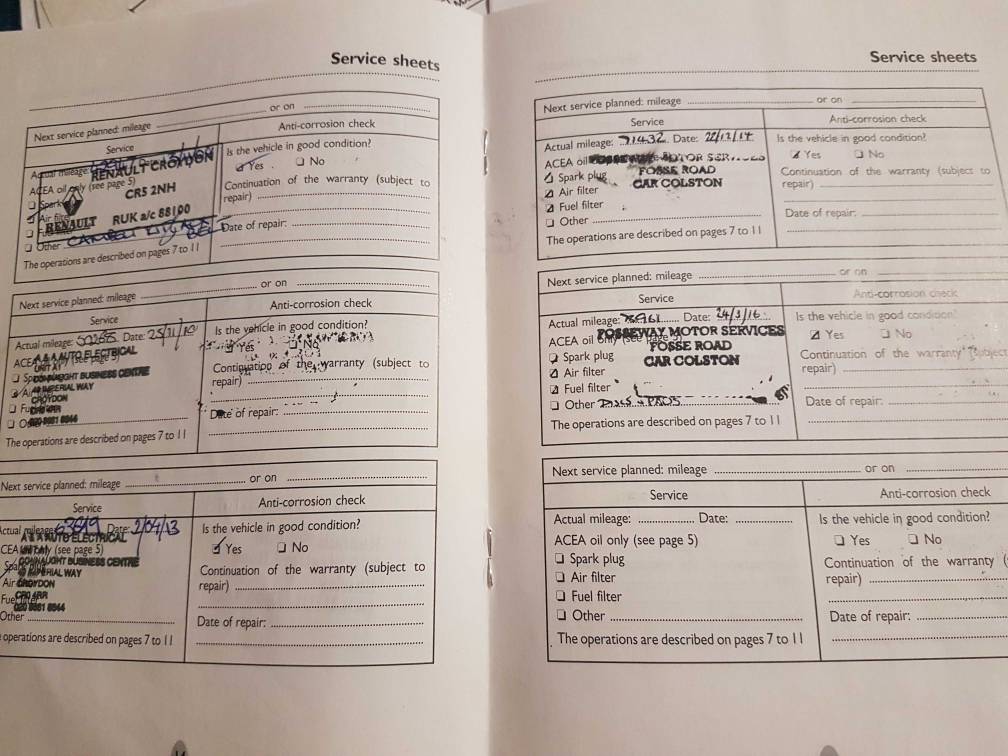 Service sheets
Next service planned: mileage or on
Service
Anti-corrosion check
Actual mileage: Date:
RENAULT CROYDON
ACEA oil only (see page 5)
CR5 2NH
Spark
Air filter
RENAULT RUK a/c 88100
Other
The operations are described on pages 7 to 11
Is the vehicle in good condition?
Yes No
Continuation of the warranty (subject to
repair)
Date of repair:
Next service planned: mileage or on
Service
Anti-corrosion check
Actual mileage: Date: 25/11/10
A & A AUTO ELECTRICAL
UNIT A1
ACEA only (see page 5)
CONNAUGHT BUSINESS CENTRE
IMPERIAL WAY
CROYDON
CR0 4RR
020 8681 8644
The operations are described on pages 7 to 11
Is the vehicle in good condition?
Yes No
Continuation of the warranty (subject to
repair)
Date of repair:
Next service planned: mileage or on
Service
Anti-corrosion check
Actual mileage: 63619 Date: 2/04/13
A & A AUTO ELECTRICAL
CEA only (see page 5)
CONNAUGHT BUSINESS CENTRE
IMPERIAL WAY
Air CROYDON
CR0 4RR
Fuel filter
020 8681 8644
Other
operations are described on pages 7 to 11
Is the vehicle in good condition?
Yes No
Continuation of the warranty (subject to
repair)
Date of repair:
Service sheets
Next service planned: mileage or on
Service
Anti-corrosion check
Actual mileage: 71432 Date: 22/12/14
ACEA oil FOSSEWAY MOTOR SERVICES
FOSSE ROAD
CAR COLSTON
Spark plug
Air filter
Fuel filter
Other
The operations are described on pages 7 to 11
Is the vehicle in good condition?
Yes No
Continuation of the warranty (subject to
repair)
Date of repair:
Next service planned: mileage or on
Service
Anti-corrosion check
Actual mileage: 78961 Date: 24/3/16
FOSSEWAY MOTOR SERVICES
ACEA oil only (see page 5)
FOSSE ROAD
CAR COLSTON
Spark plug
Air filter
Fuel filter
Other DISCS + PADS
The operations are described on pages 7 to 11
Is the vehicle in good condition?
Yes No
Continuation of the warranty (subject
repair)
Date of repair:
Next service planned: mileage or on
Service
Anti-corrosion check
Actual mileage: Date:
ACEA oil only (see page 5)
Spark plug
Air filter
Fuel filter
Other
The operations are described on pages 7 to 11
Is the vehicle in good condition?
Yes No
Continuation of the warranty (
repair)
Date of repair: